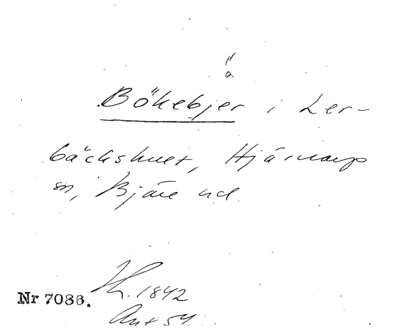 "a
Bökebjer i Ler-
bäckshult, Hjärnarp
sn, Bjäre hd.
Nr 7086. H. 1842
Ant 54.